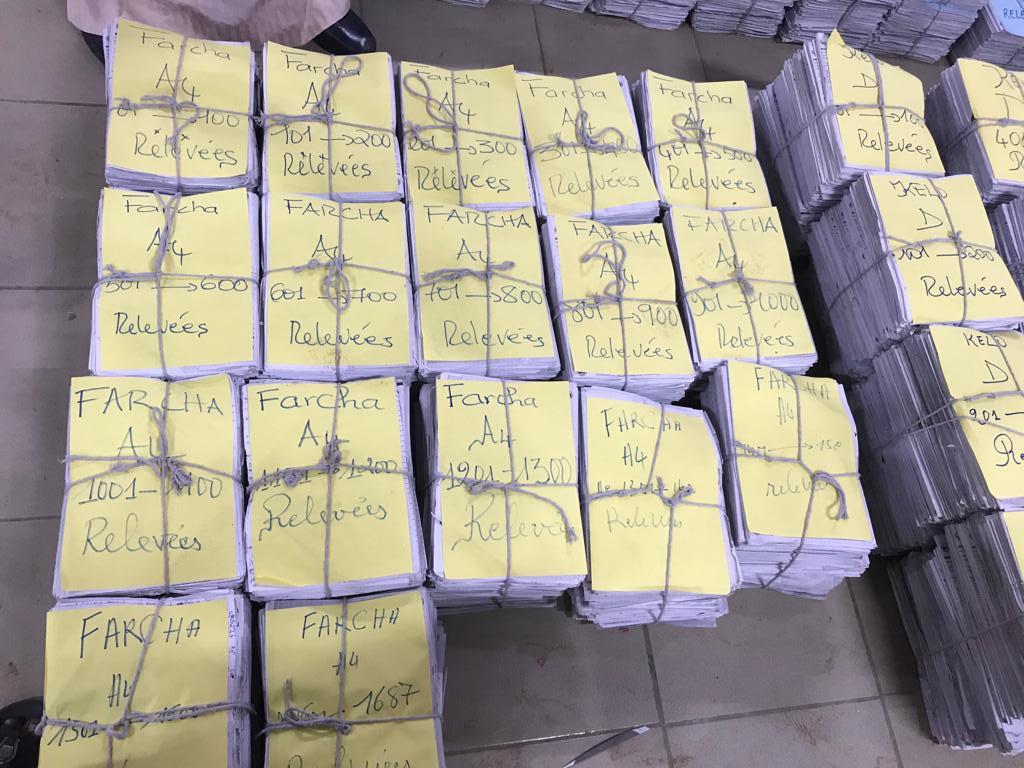 Farcha
A4
01 → 100
Relevées
Farcha
A4
101 → 200
Relevées
Farcha
A4
201 → 300
Relevées
Farcha
A4
301
Relevées
Farcha
A4
401 → 500
Relevées
KELO
D
01 → 100
Relevées
D
RELE
Farcha
A4
501 → 600
Relevées
FARCHA
A4
601 → 700
Relevées
FARCHA
A4
701 → 800
Relevées
FARCHA
A4
801 → 900
Relevées
FARCHA
A4
901 → 1000
Relevées
KELO
D
101 → 200
Relevées
FARCHA
A4
1001 - 1100
Relevées
Farcha
A4
1200
Relevées
Farcha
A4
1201 - 1300
Relevées
FARCHA
A4
Relevées
FARCHA
A4
relevées
KELO
D
201 -
FARCHA
A4
1501 → 1600
FARCHA
A4
1687